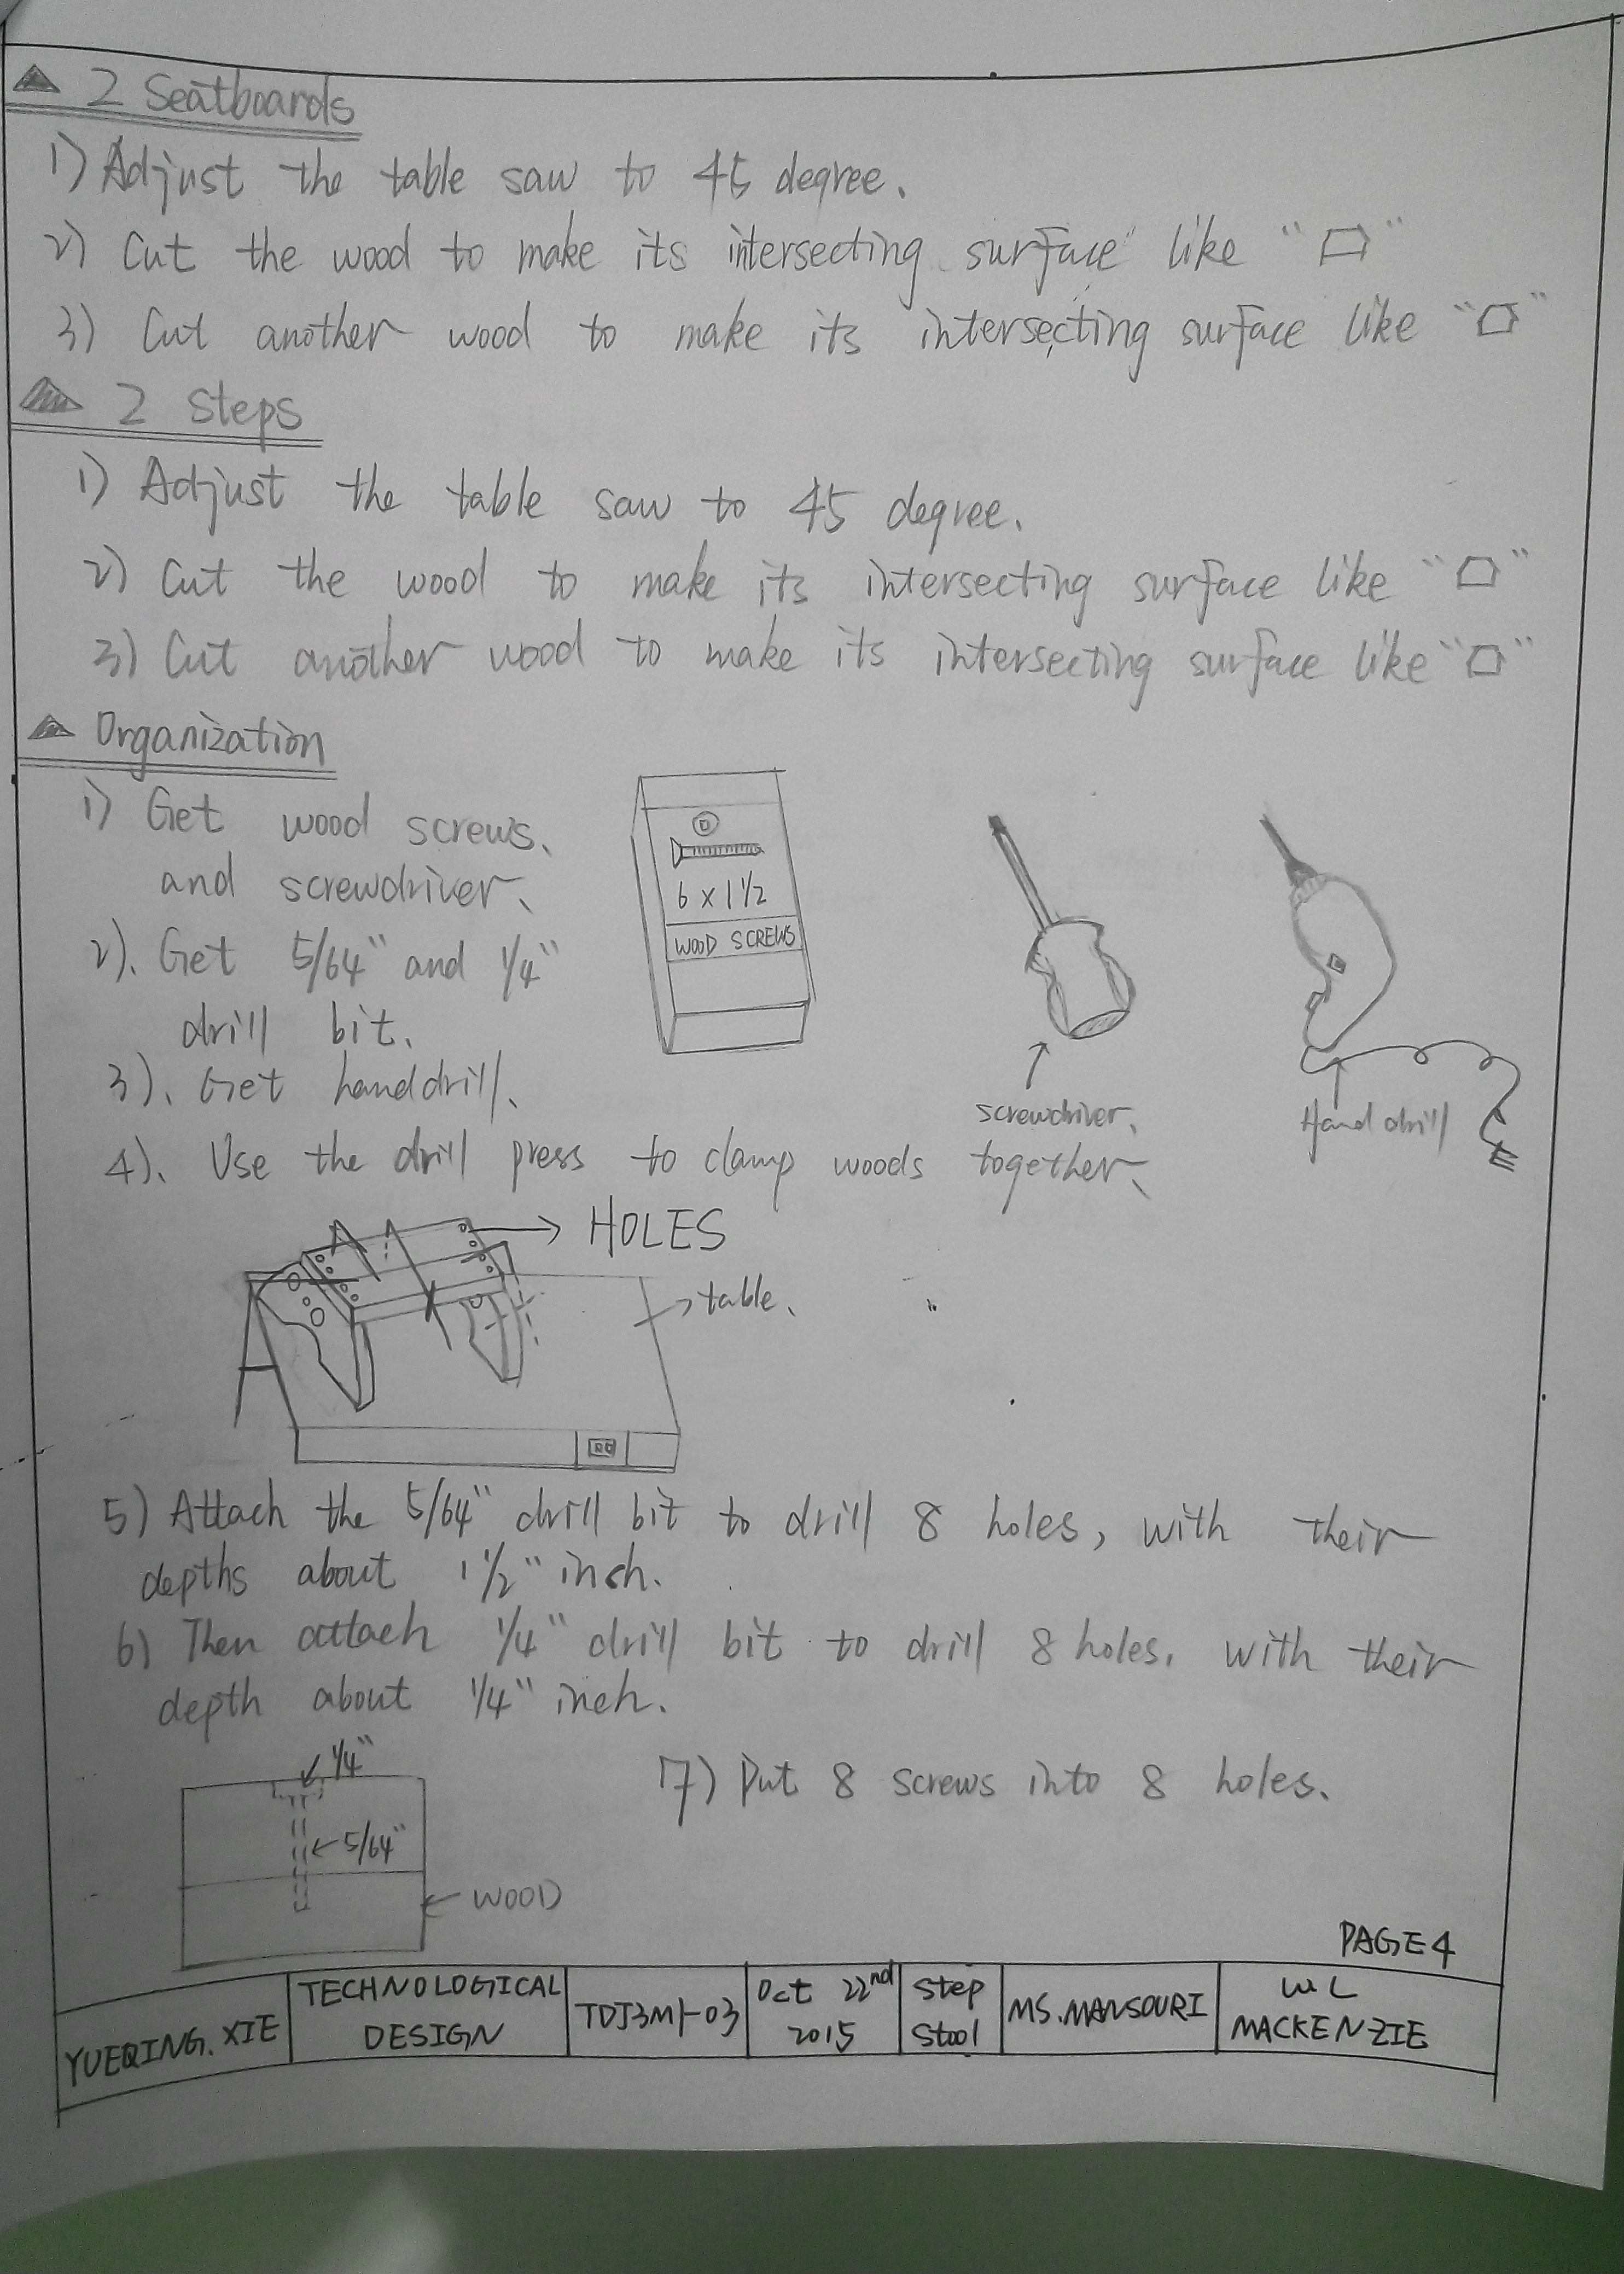 2 Seatboards
1) Adjust the table saw to 45 degree.
2) Cut the wood to make its intersecting surface like " "
3) Cut another wood to make its intersecting surface like " "
2 Steps
1) Adjust the table saw to 45 degree.
2) Cut the wood to make its intersecting surface like " "
3) Cut another wood to make its intersecting surface like " "
Organization
1) Get wood screws.
and screwdriver.
2). Get 5/64" and 1/4"
drill bit.
3). Get handdrill.
6 x 1 1/2
WOOD SCREWS
screwdriver.
Hand drill
4). Use the drill press to clamp woods together.
HOLES
table.
5) Attach the 5/64" drill bit to drill 8 holes, with their
depths about 1 1/2" inch.
6) Then attach 1/4" drill bit to drill 8 holes, with their
depth about 1/4" inch.
1/4"
5/64"
WOOD
7) Put 8 screws into 8 holes.
PAGE 4
YUEQING. XIE
TECHNOLOGICAL
DESIGN
TDJ3M1-03
Oct 22nd
2015
Step
Stool
MS. MANSOURI
W L
MACKENZIE